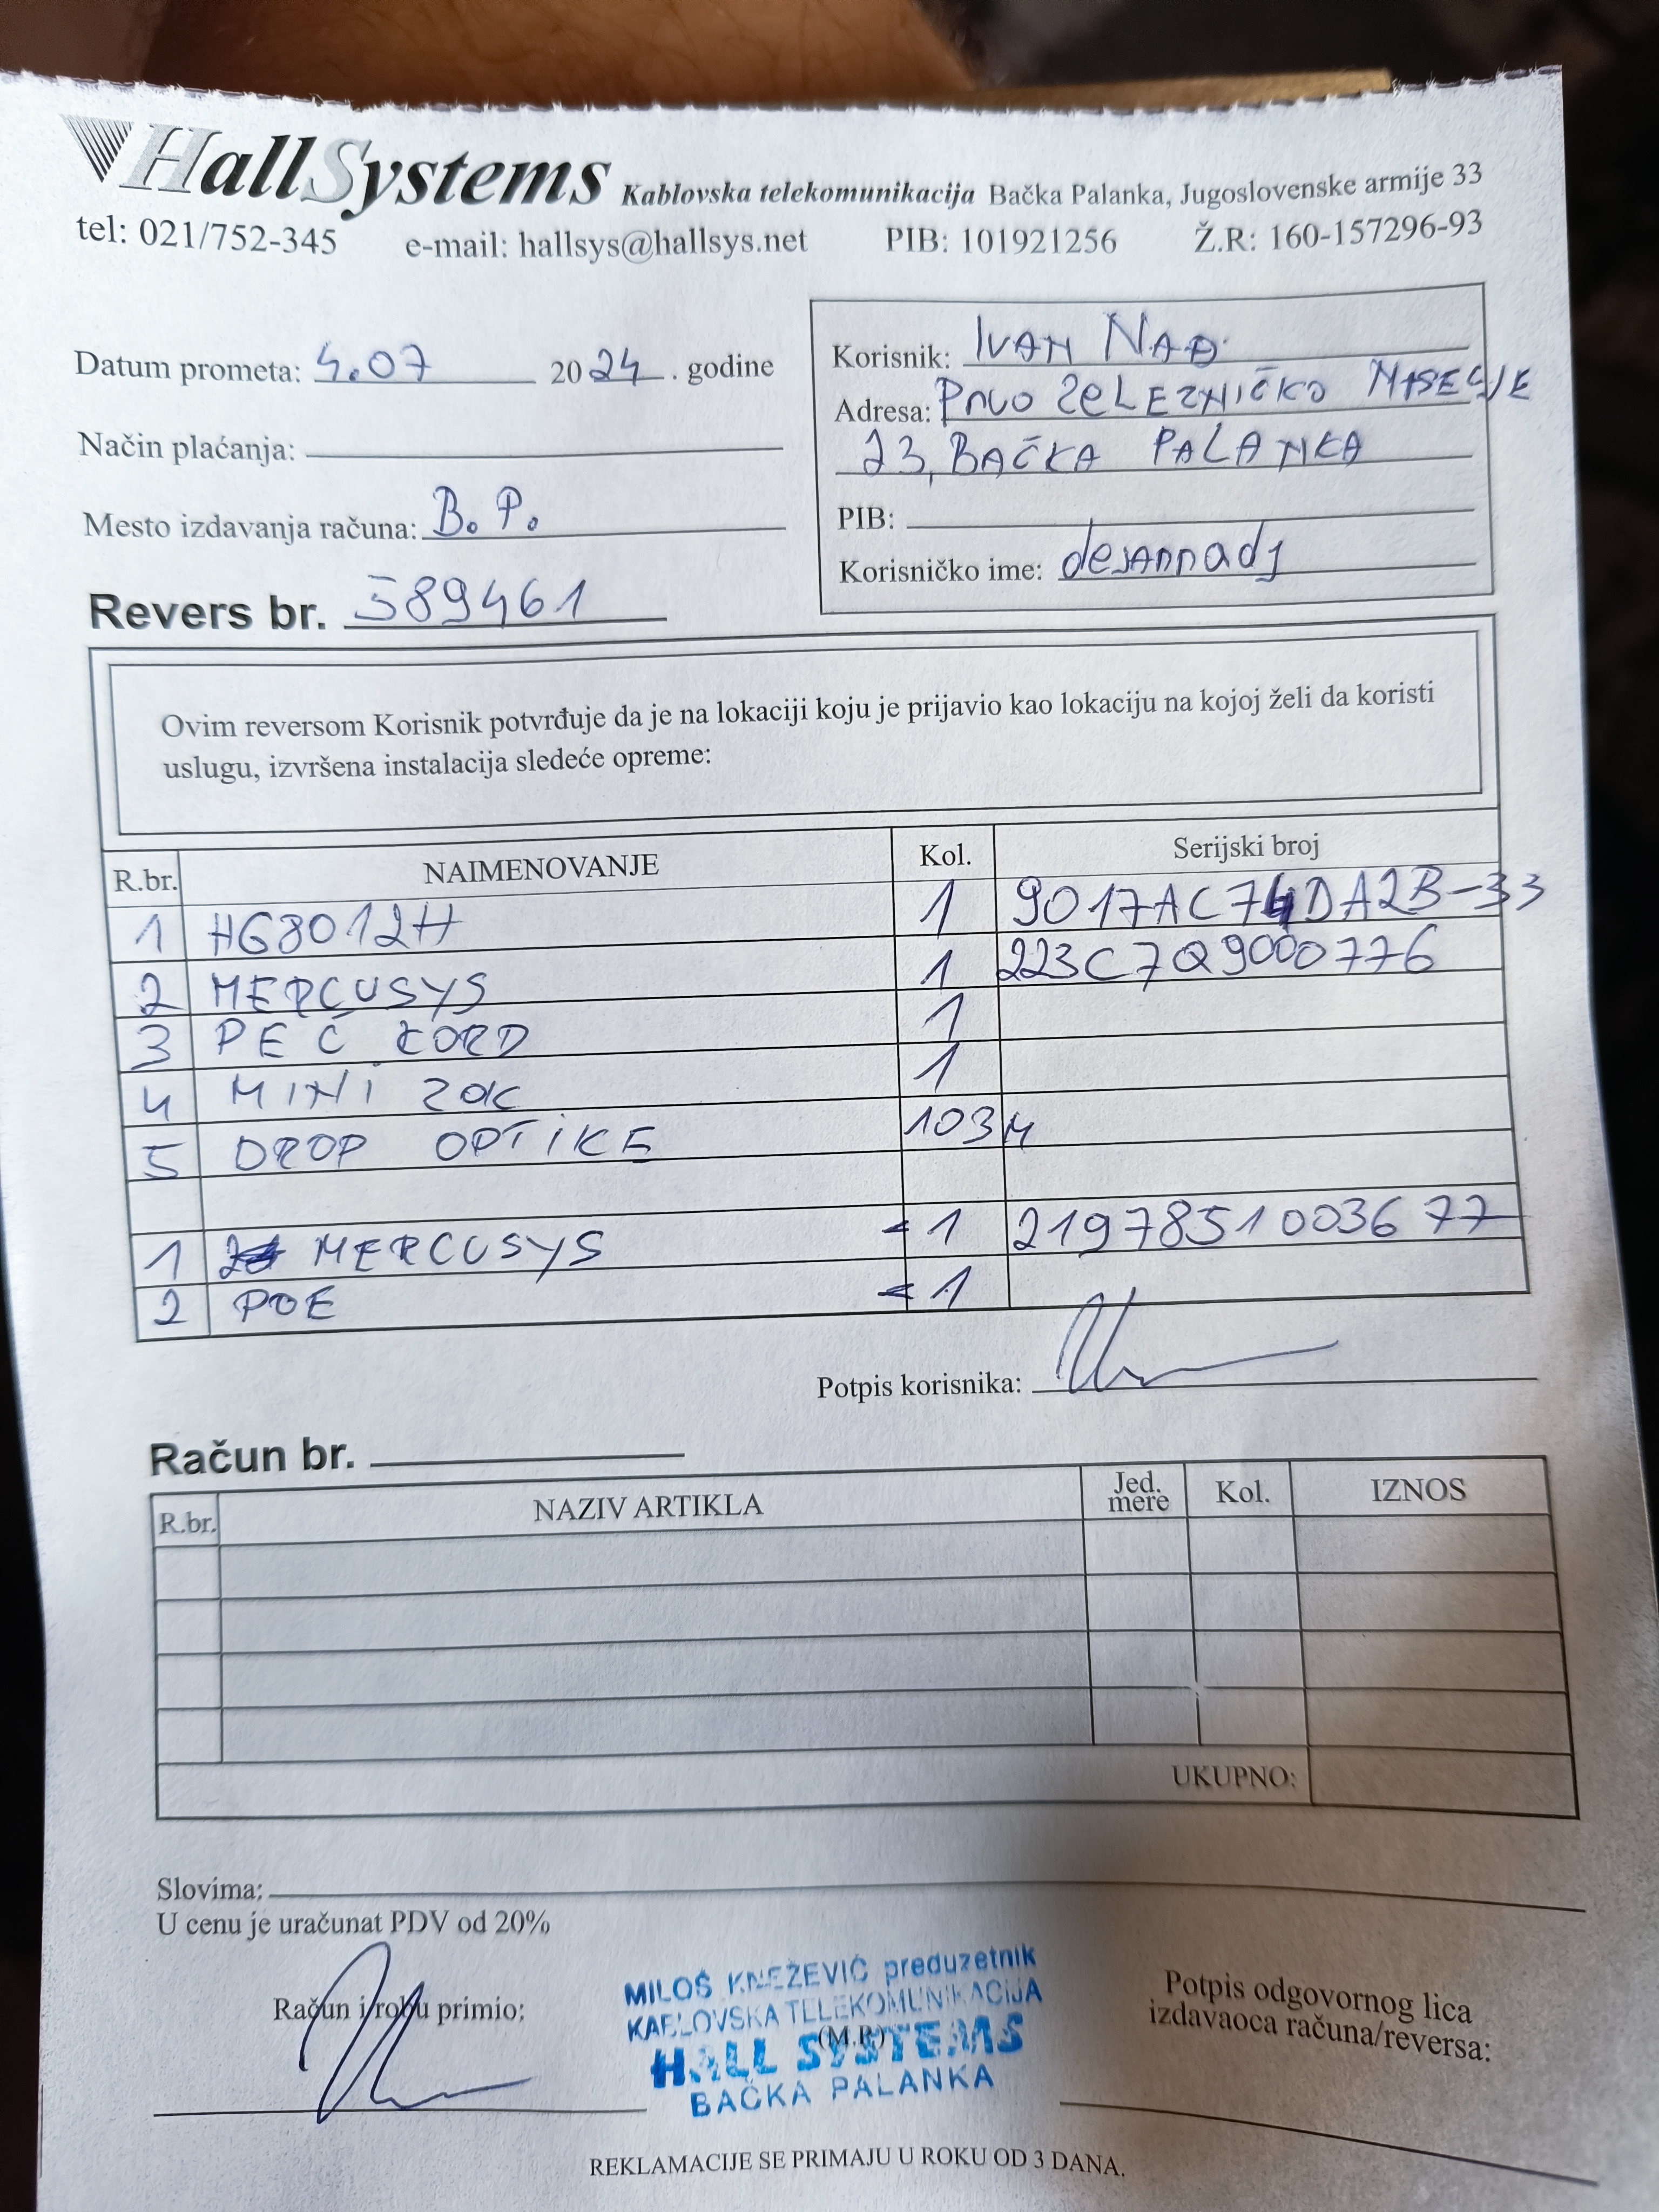 HallSystems Kablovska telekomunikacija Bačka Palanka, Jugoslovenske armije 33
tel: 021/752-345 e-mail: hallsys@hallsys.net PIB: 101921256 Ž.R: 160-157296-93
Datum prometa: 4.07 2024. godine
Način plaćanja:
Mesto izdavanja računa: B. P.
Revers br. 589461
Korisnik: IVAN NAĐ
Adresa: PRVO ŽELEZNIČKO NASELJE
23, BAČKA PALANKA
PIB:
Korisničko ime: desannadj
Ovim reversom Korisnik potvrđuje da je na lokaciji koju je prijavio kao lokaciju na kojoj želi da koristi
uslugu, izvršena instalacija sledeće opreme:
R.br. NAIMENOVANJE Kol. Serijski broj
1 HG8012H 1 9017AC74DA2B-33
2 MERCUSYS 1 223C7Q9000776
3 PEČ KORD 1
4 MINI ZOK 1
5 DROP OPTIKE 103M
1 MERCUSYS -1 2197851003677
2 POE -1
Potpis korisnika:
Račun br.
R.br. NAZIV ARTIKLA Jed. mere Kol. IZNOS
UKUPNO:
Slovima:
U cenu je uračunat PDV od 20%
Račun i robu primio:
MILOŠ KNEŽEVIĆ preduzetnik
KABLOVSKA TELEKOMUNIKACIJA
(M.P.)
HALL SYSTEMS
BAČKA PALANKA
Potpis odgovornog lica
izdavaoca računa/reversa:
REKLAMACIJE SE PRIMAJU U ROKU OD 3 DANA.